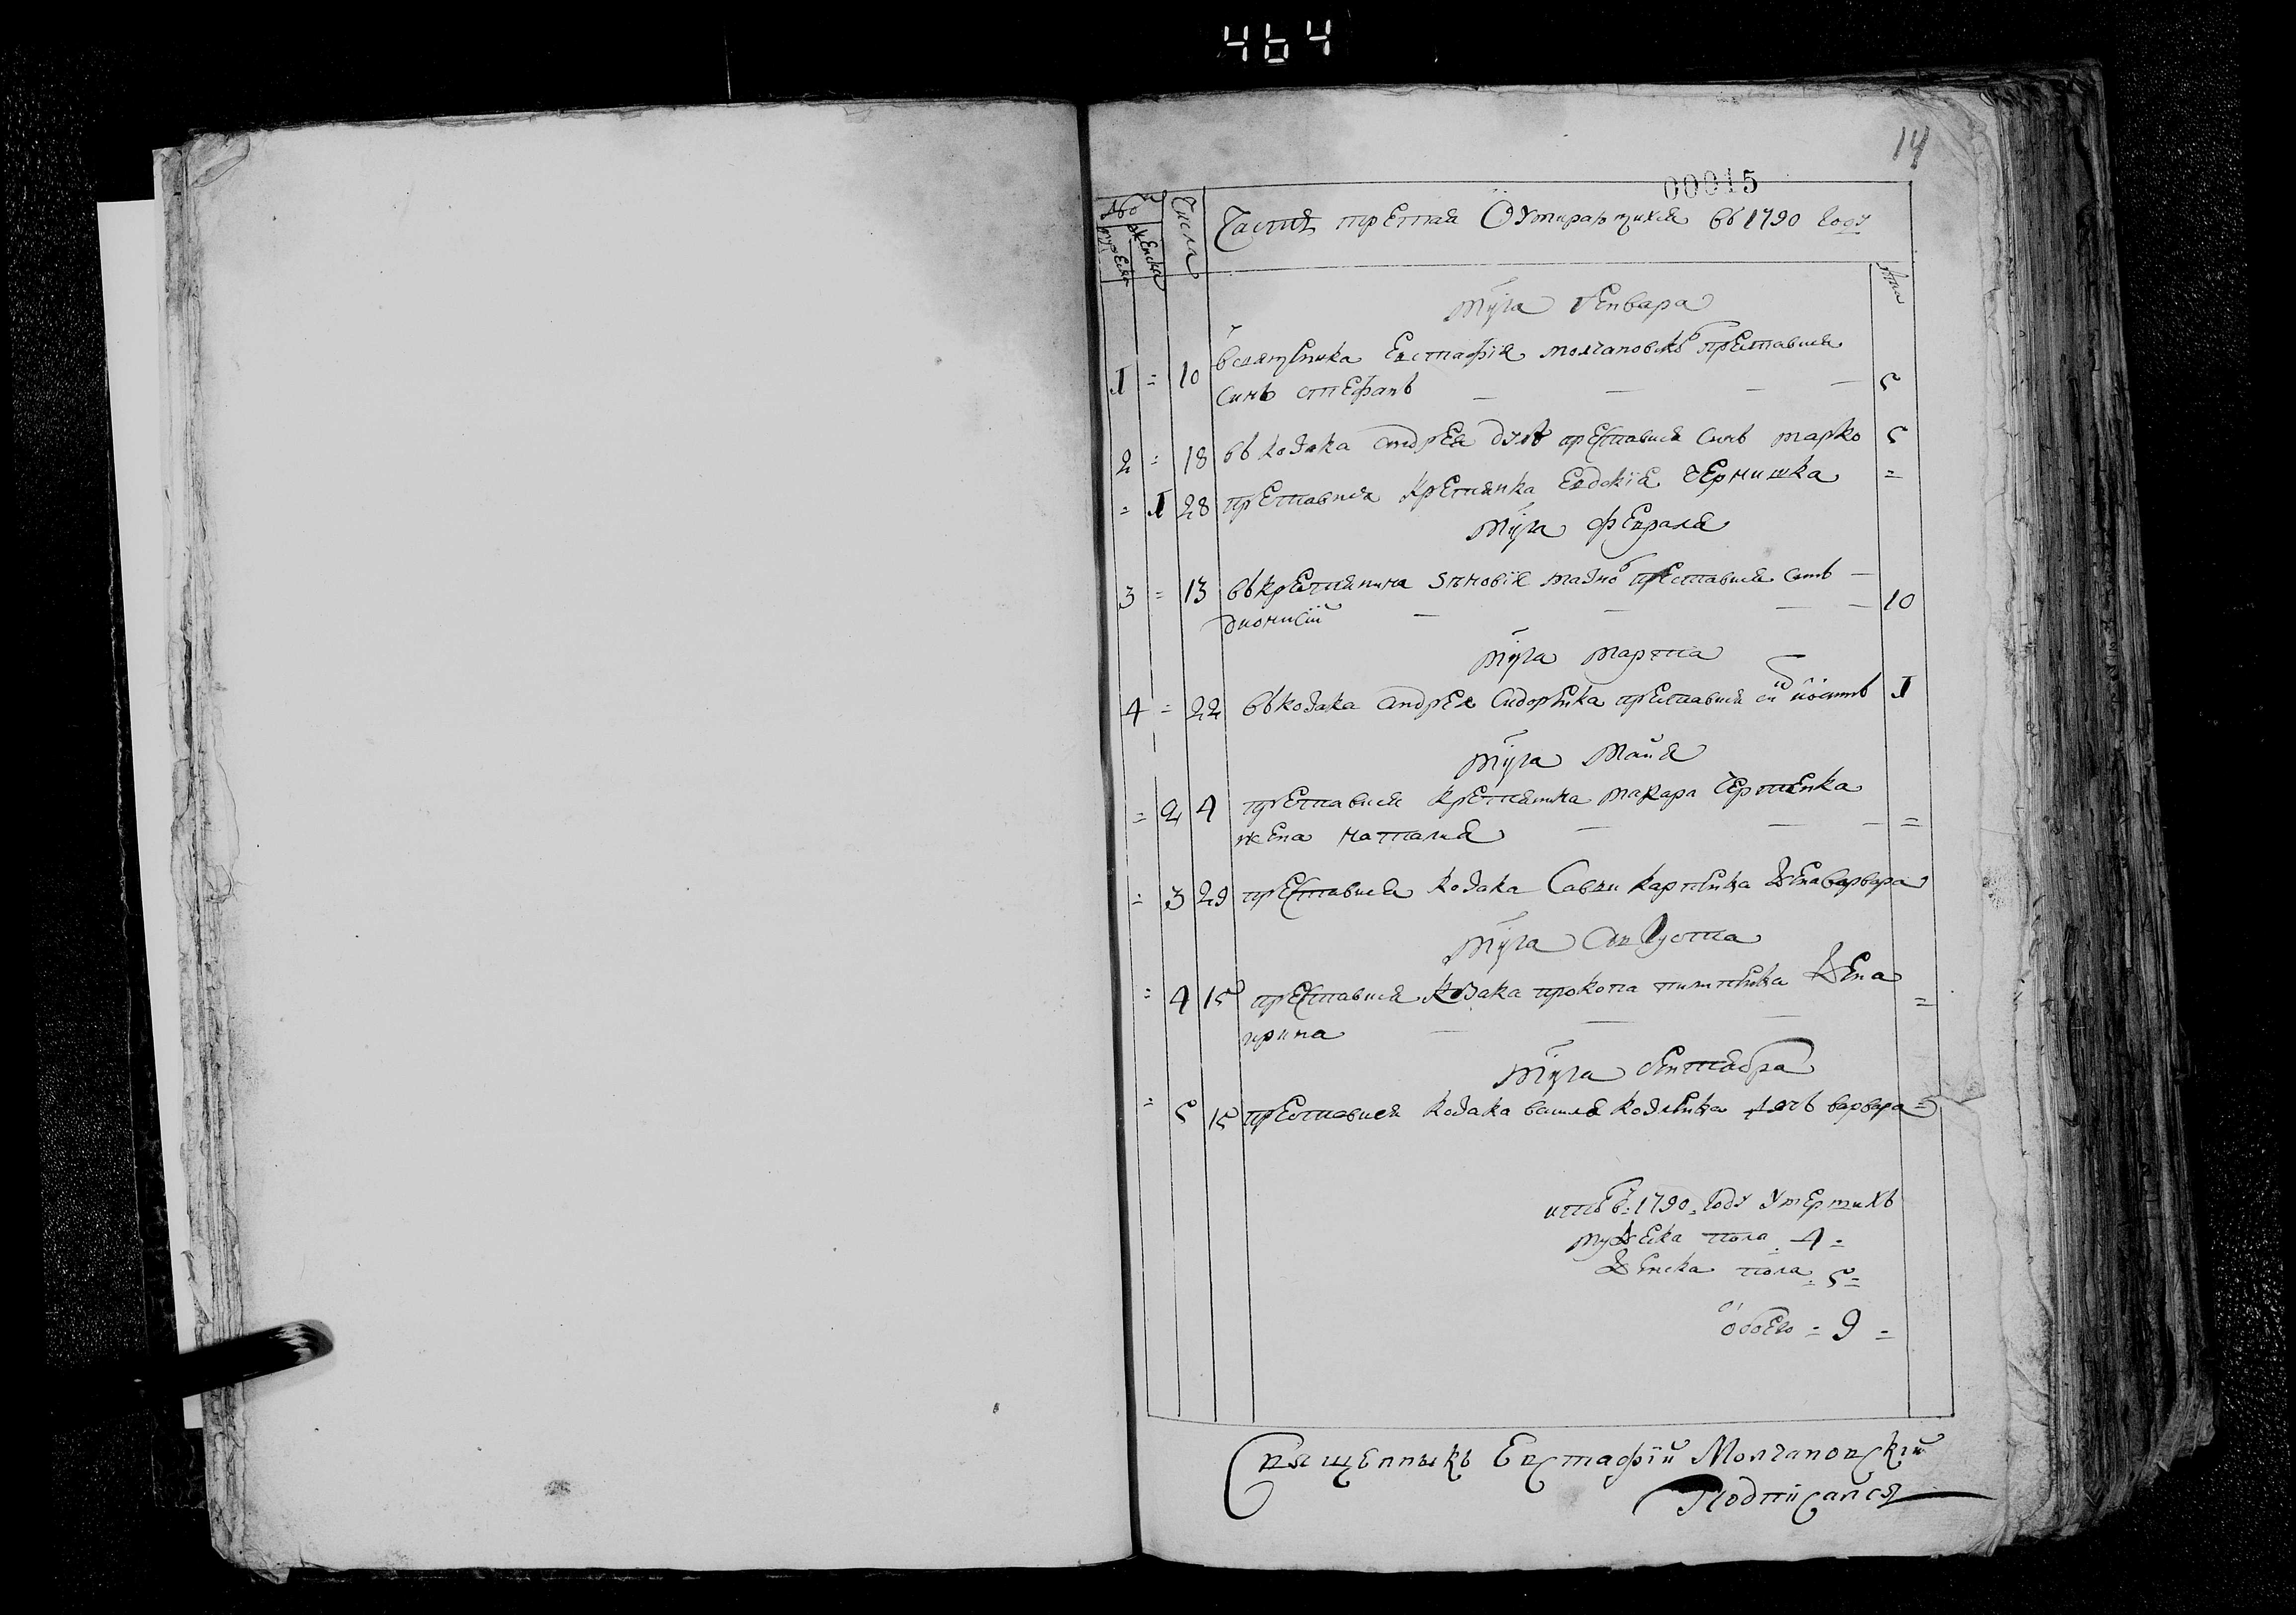 464
14
00015
Число
Часть третая Ѡ умирающихся въ 1790 году
мужеска
женска
Числа
лѣта
мца генвара
1 = 10 в священика Евстафія молчановскѡ преставися
синъ стефанъ — — — — 5
2 = 18 въ козака андрея преставися синъ марко 5
= 1 28 преставися крестянка Евдокія чернишка =
мца февраля
3 = 13 въ крестянина зѣновія преставися синъ —
дионисій — — — — 10
мца марта
4 = 22 въ козака андрея Сидорѣнка преставися 1
мца маия
= 2 4 преставися крестянина макара
жена наталия — — — =
= 3 29 преставися козака Савви карпѣнка жена варвара
мца августа
= 4 15 преставися козака прокопа пилипѣнка жена
ирина — — — =
мца сентабра
= 5 15 преставися козака василя козлѣнка дочь варвара =
итого в: 1790 году умершихъ
мужеска пола 4 =
женска пола 5 =
обоего = 9 =
Священникъ Евстафій Молчановскій
Подпісался